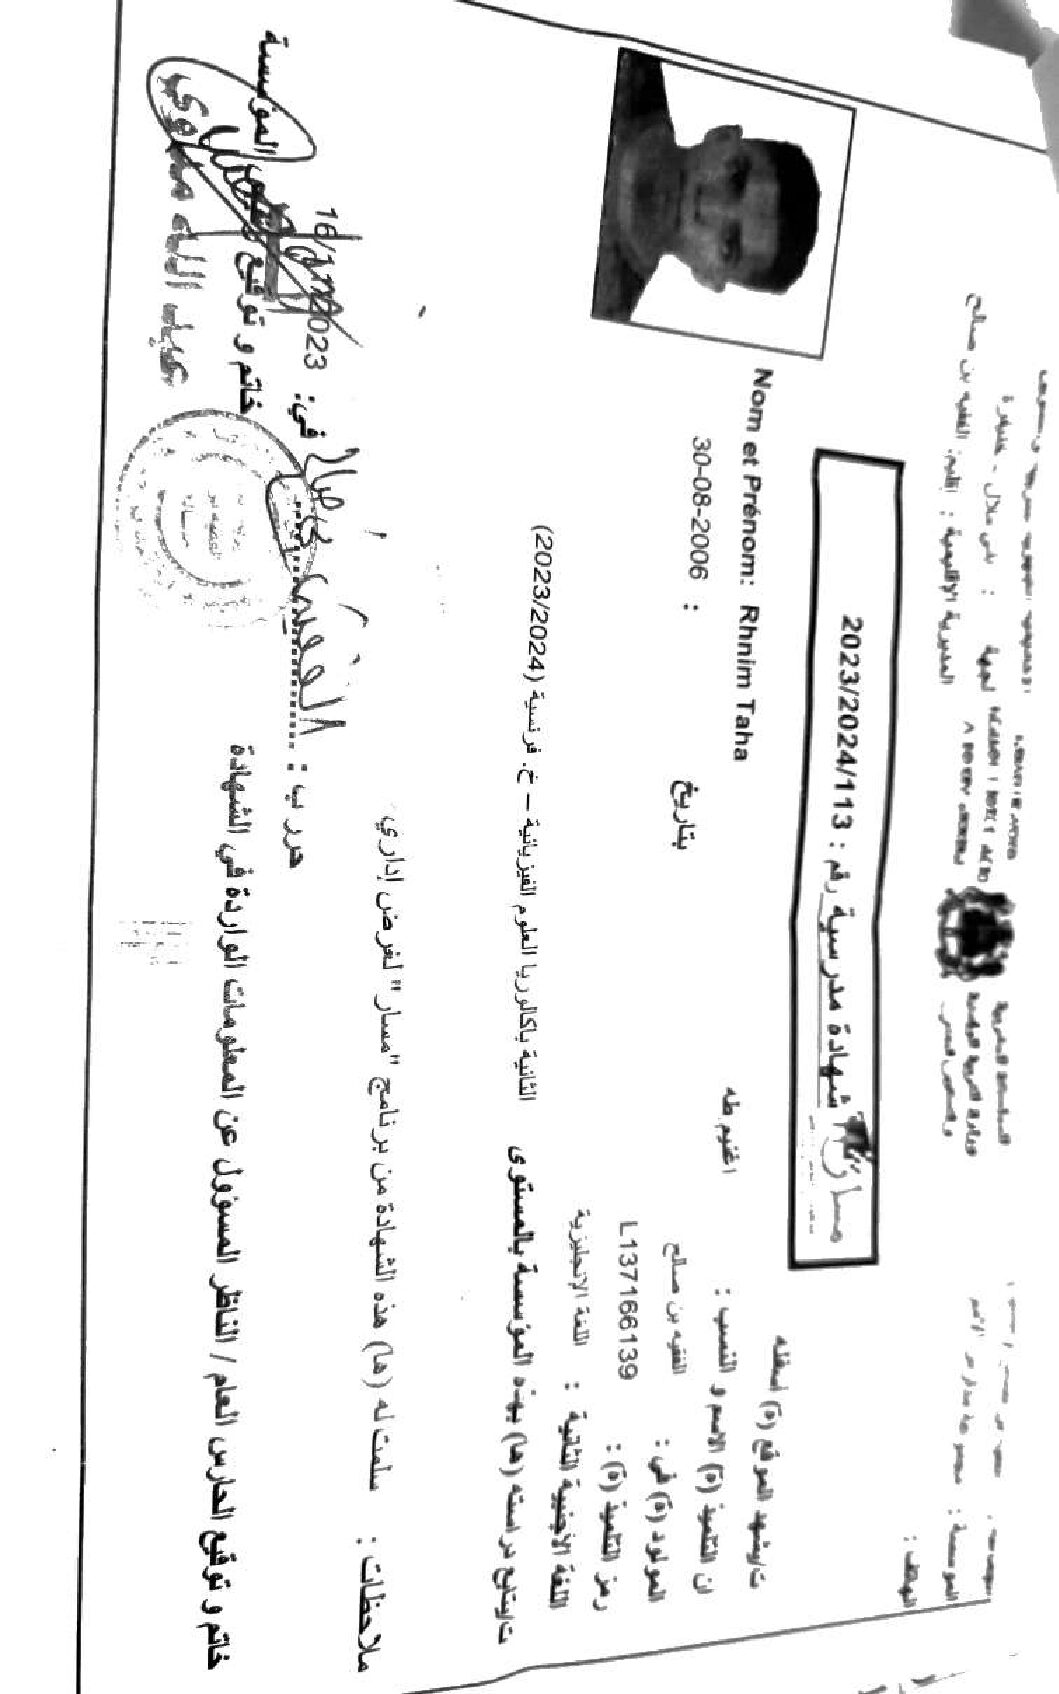 لجهة : بني ملال - خنيفرة
المديرية الإقليمية : إقليم: الفقيه بن صالح
المؤسسة :
الهاتف :
مسار
شهادة مدرسية رقم : 2023/2024/113
ت/يشهد الموقع (ة) أسفله
ان التلميذ (ة) الاسم و النسب : اغنيم طه Nom et Prénom: Rhnim Taha
المولود (ة) في : الفقيه بن صالح بتاريخ : 30-08-2006
رمز التلميذ (ة) : L137166139
اللغة الأجنبية الثانية : اللغة الإنجليزية
ت/يتابع دراسته (ها) بهذه المؤسسة بالمستوى الثانية باكالوريا العلوم الفيزيائية – خ. فرنسية (2023/2024)
ملاحظات : سلمت له (ها) هذه الشهادة من برنامج "مسار" لغرض إداري.
حرر ب : الفقيه بن صالح في: 2023
خاتم و توقيع الحارس العام / الناظر المسؤول عن المعلومات الواردة في الشهادة
خاتم و توقيع المؤسسة
عبد الله